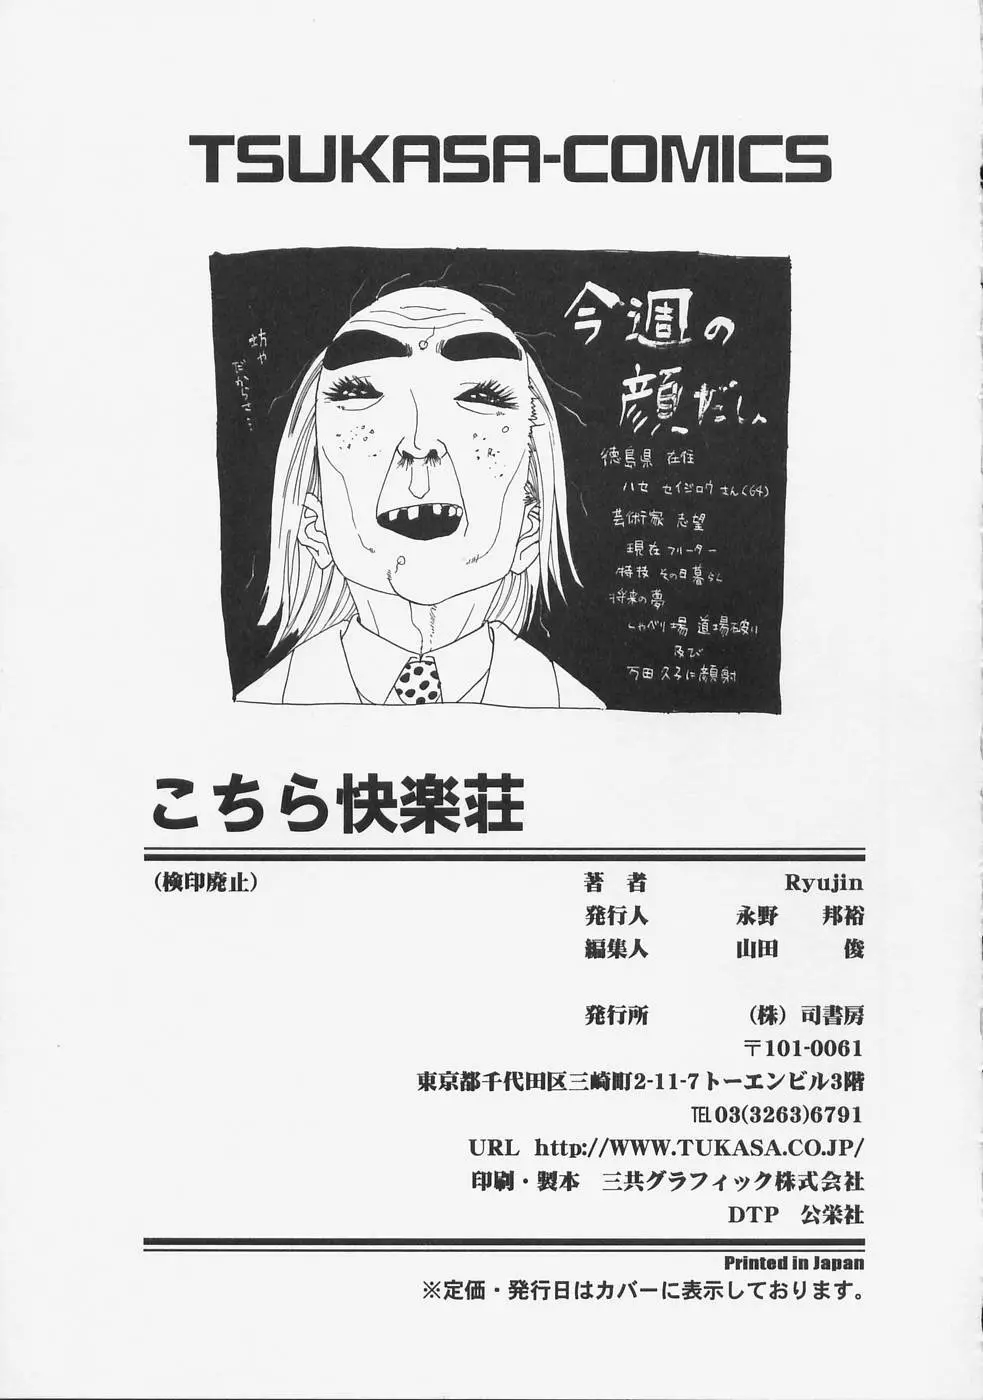 TSUKASA-COMICS
今週の
顔だしへ
坊や
だからさ…
徳島県 在住
ハセ セイジロウ さん(64)
芸術家 志望
現在 フリーター
特技 その日暮らし
将来の夢
しゃべり場 道場破り
及び
万田久子に顔射
こちら快楽荘
(検印廃止)
著 者 Ryujin
発行人 永野 邦裕
編集人 山田 俊
発行所 (株)司書房
〒101-0061
東京都千代田区三崎町2-11-7トーエンビル3階
℡03(3263)6791
URL http://WWW.TUKASA.CO.JP/
印刷・製本 三共グラフィック株式会社
DTP 公栄社
Printed in Japan
※定価・発行日はカバーに表示しております。